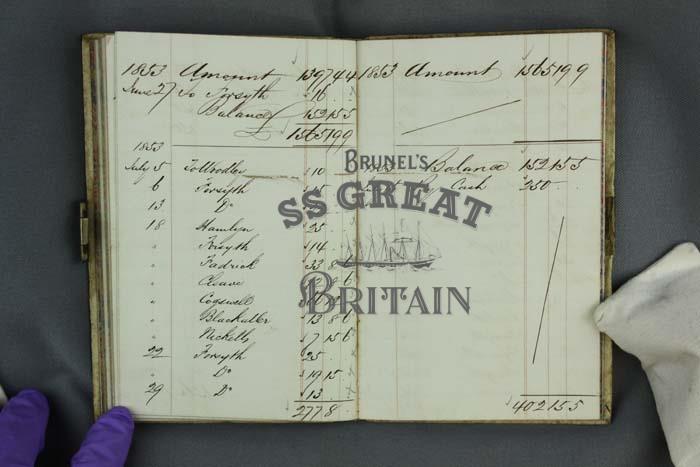 1853 Amount 1397 4 4
June 27 To Forsyth 16
Balance 152 15 5
£ 1565 19 9
1853
July 5 10
6 Forsyth 15
13 Do
18 Hamlyn 25
" Forsyth 14
" Padrick 33 8 6
" Cleave 8 6
" Cogswell
" Blackaller 13 8 6
" Ricketts 7 15 6
22 Forsyth 25
" Do 19 15
29 Do 13
277 8
1853 Amount 1565 19 9
Balance 152 15 5
Cash 250
402 15 5
BRUNEL'S
SS GREAT
BRITAIN